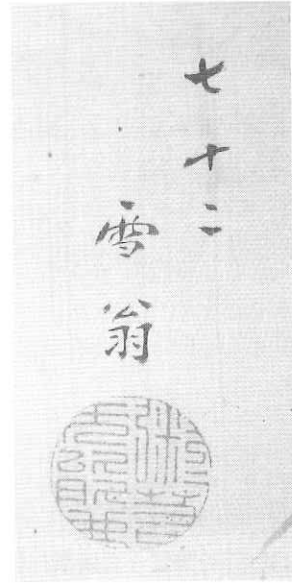 七十二
雪翁